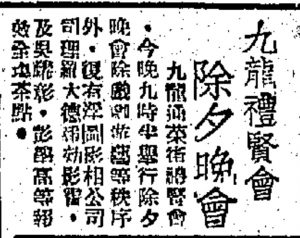 九龍禮賢會
除夕晚會
九龍通菜街禮賢會
・今晚九時半舉行除夕
晚會除戲劇遊藝等秩序
外・復有澤圖影相公司
司理羅大德播効影霍・
及吳耀彰・彭學高等報
效全塲茶點・